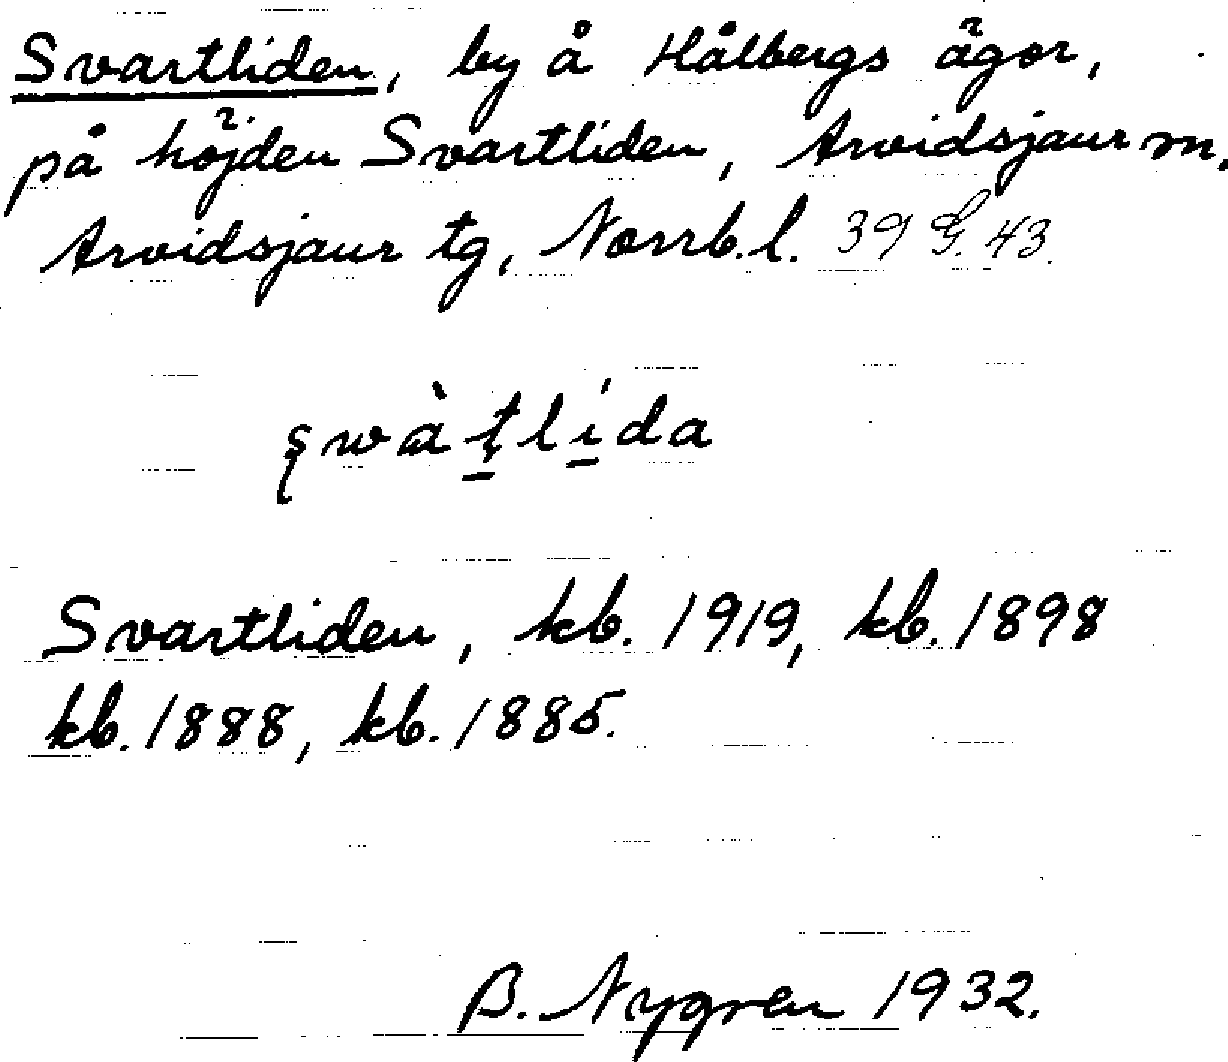 Svartliden, by å Hålbergs ägor,
på höjden Svartliden, Arvidsjaur sn,
Arvidsjaur tg, Norrb.l. 39 G. 43.
Svartliden, kb. 1919, kb. 1898
kb. 1888, kb. 1885.
B. Nygren 1932.